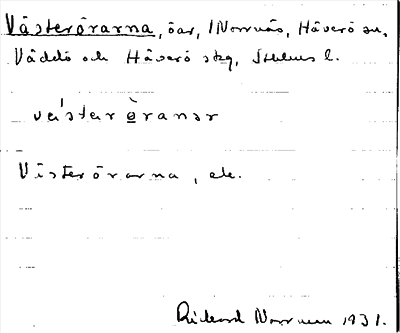 Västerörarna, öar, 1 Norrnäs, Häverö sn,
Väddö och Häverö skg, Sthlms l.
vä́stər ɵ̀ranar
Västerörarna, ek.
Rickard Norrman 1931.